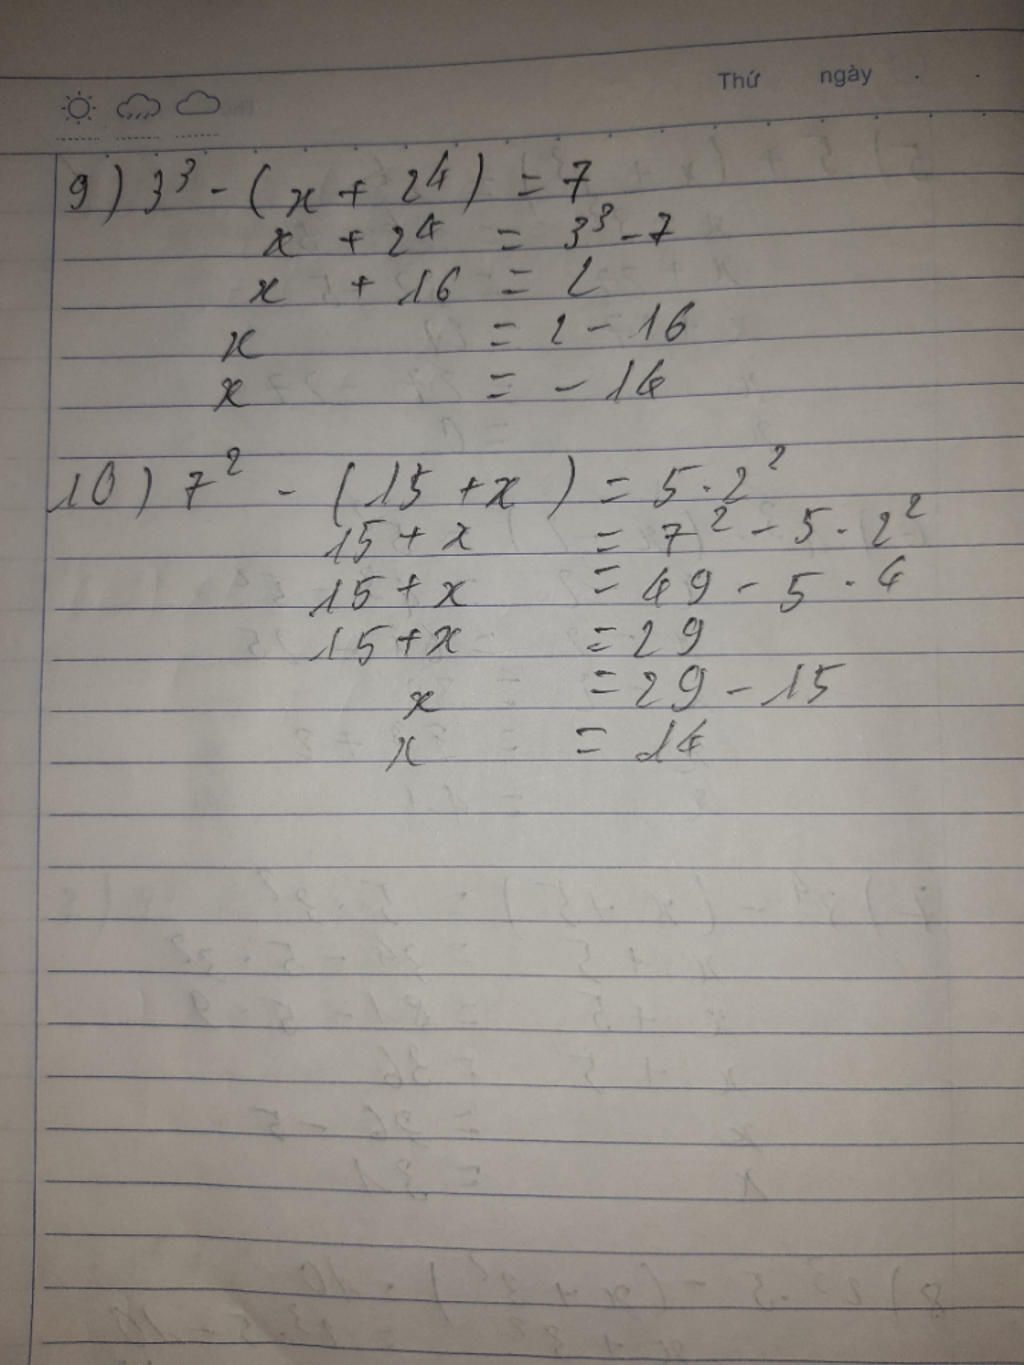 Thứ ngày
9) 3³ - (x + 2⁴) = 7
x + 2⁴ = 3³ - 7
x + 16 = 2
x = 2 - 16
x = - 14
10) 7² - (15 + x) = 5 · 2²
15 + x = 7² - 5 · 2²
15 + x = 49 - 5 · 4
15 + x = 29
x = 29 - 15
x = 14